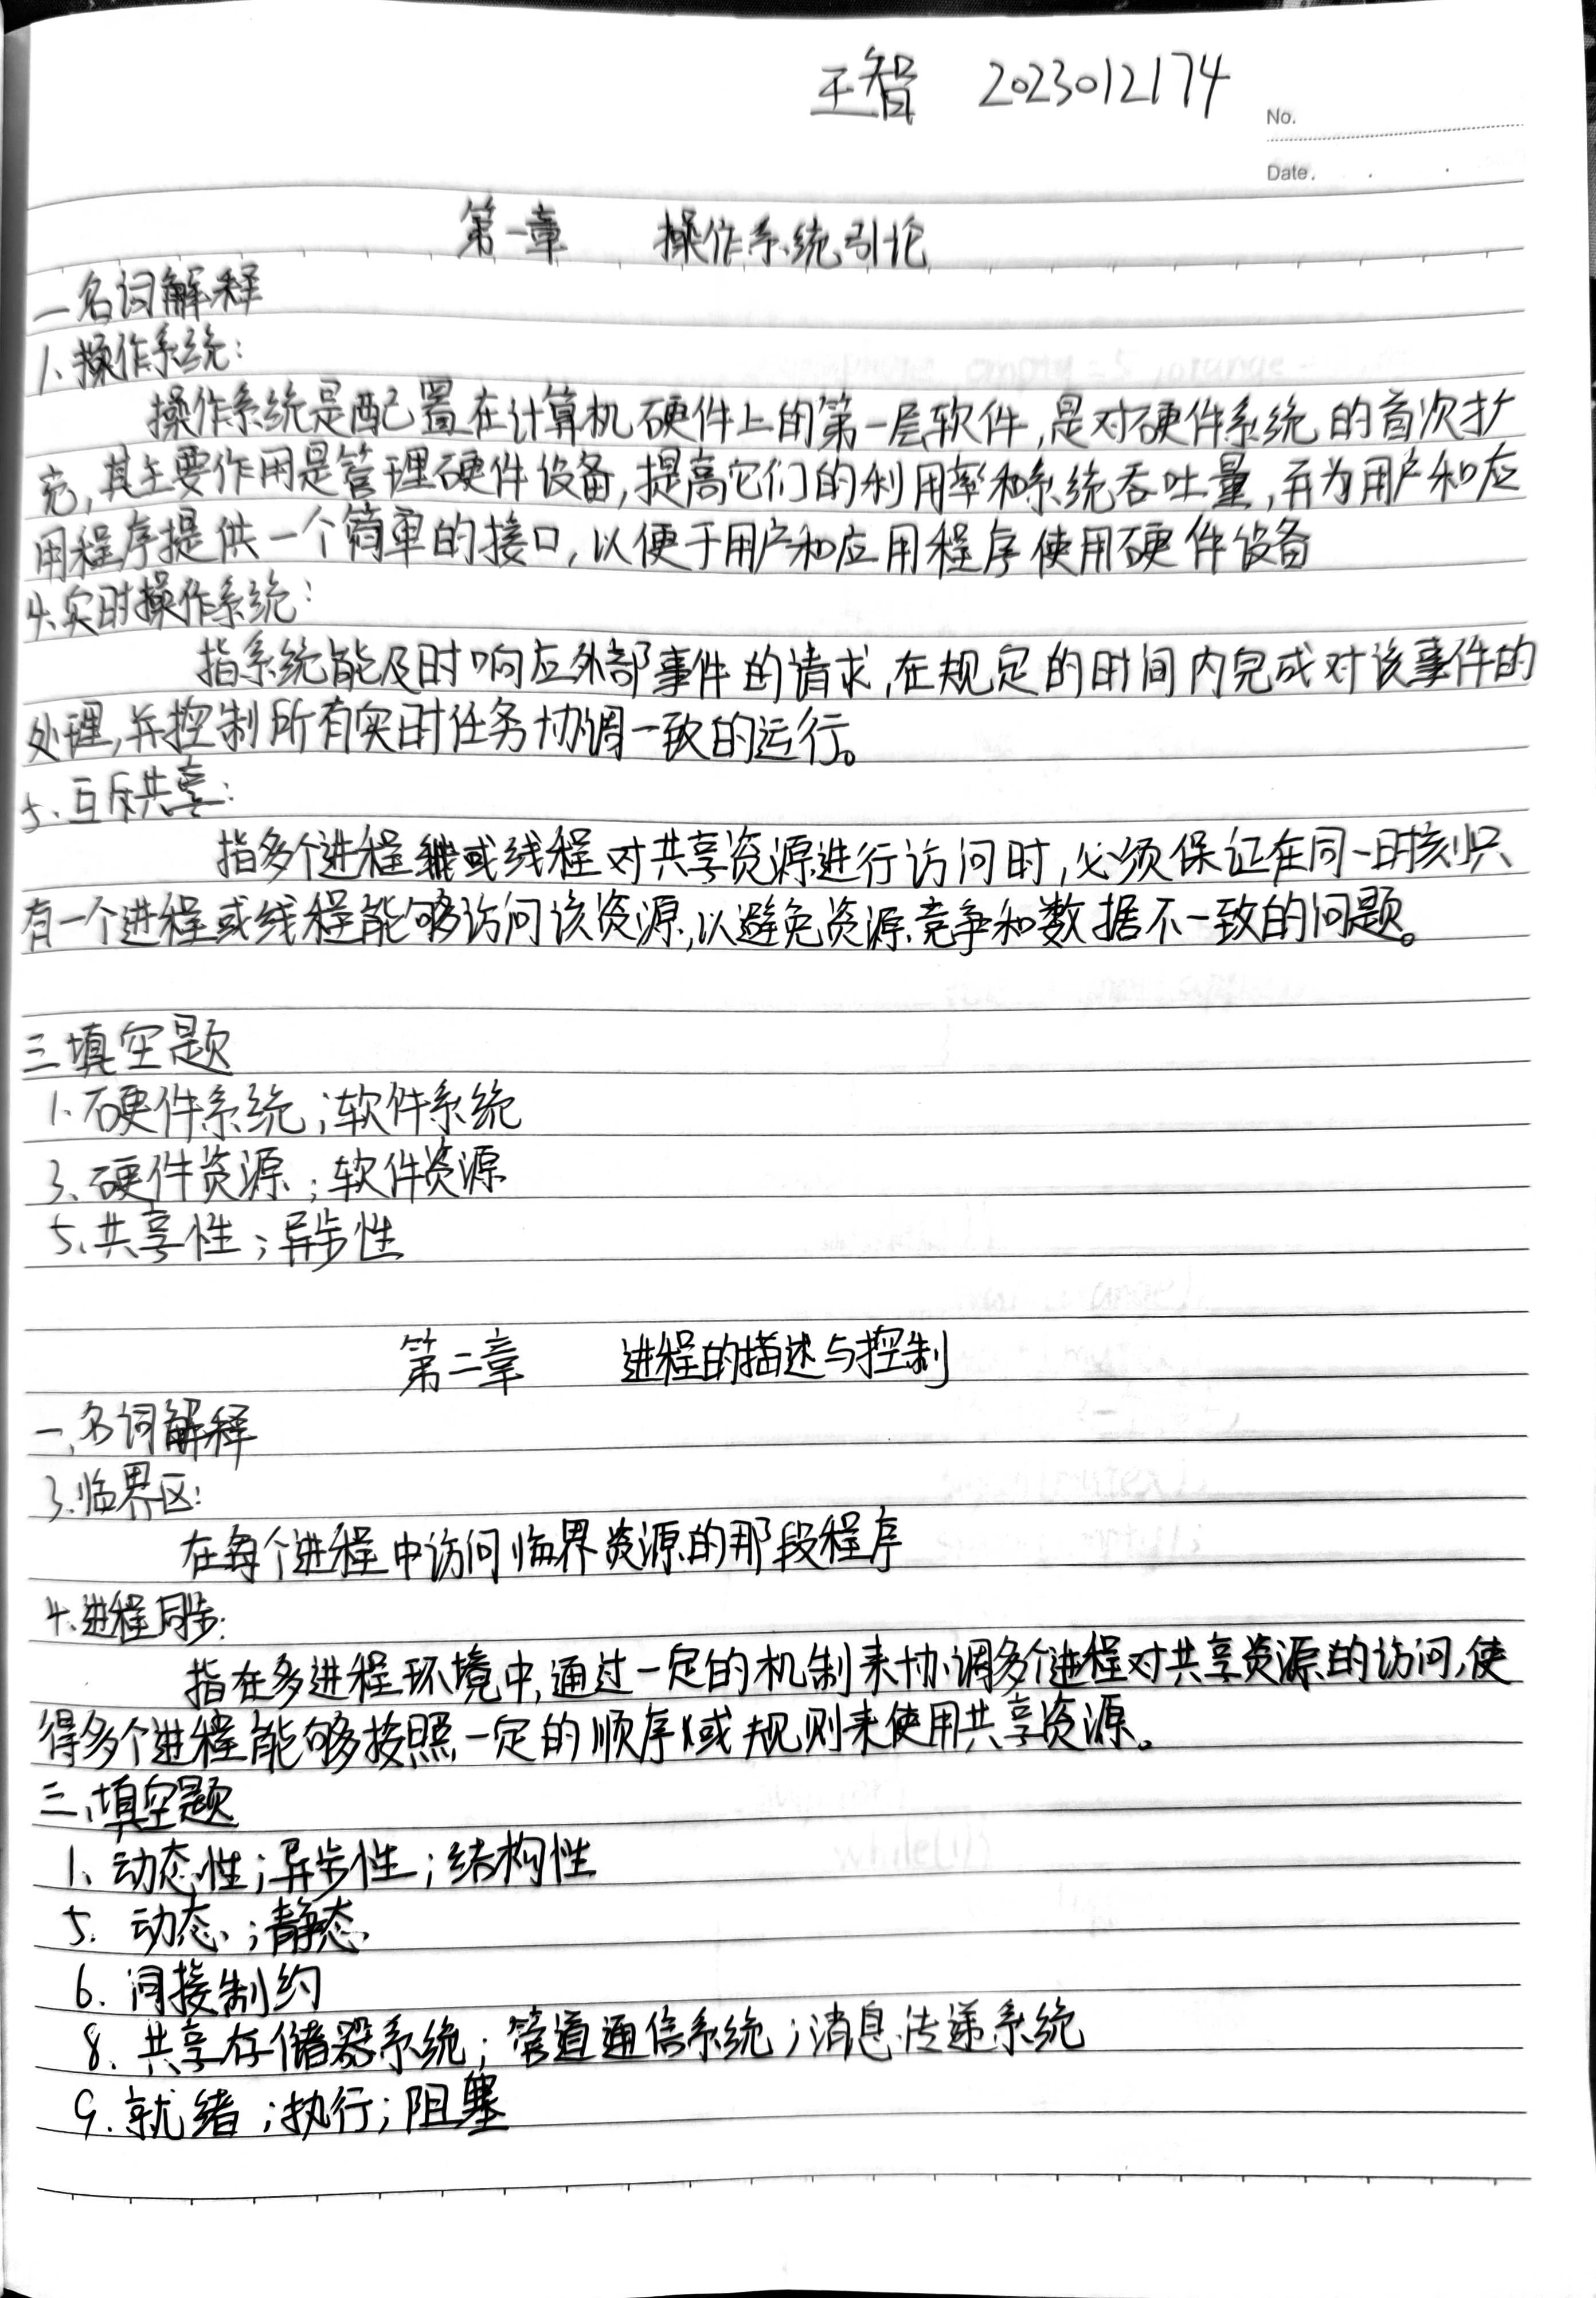 王智 2023012174
No.
Date.
第一章 操作系统引论
一名词解释
1.操作系统:
操作系统是配置在计算机硬件上的第一层软件,是对硬件系统的首次扩
充,其主要作用是管理硬件设备,提高它们的利用率和系统吞吐量,并为用户和应
用程序提供一个简单的接口,以便于用户和应用程序使用硬件设备
4.实时操作系统:
指系统能及时响应外部事件的请求,在规定的时间内完成对该事件的
处理,并控制所有实时任务协调一致的运行。
5.互斥共享:
指多个进程或线程对共享资源进行访问时,必须保证在同一时刻只
有一个进程或线程能够访问该资源,以避免资源竞争和数据不一致的问题。
三填空题
1.硬件系统;软件系统
3、硬件资源;软件资源
5、共享性;异步性
第二章 进程的描述与控制
一、名词解释
3.临界区:
在每个进程中访问临界资源的那段程序
4、进程同步:
指在多进程环境中,通过一定的机制来协调多个进程对共享资源的访问,使
得多个进程能够按照一定的顺序或规则来使用共享资源。
三、填空题
1、动态性;异步性;结构性
5. 动态;静态
6. 间接制约
8. 共享存储器系统;管道通信系统;消息传递系统
9.就绪;执行;阻塞